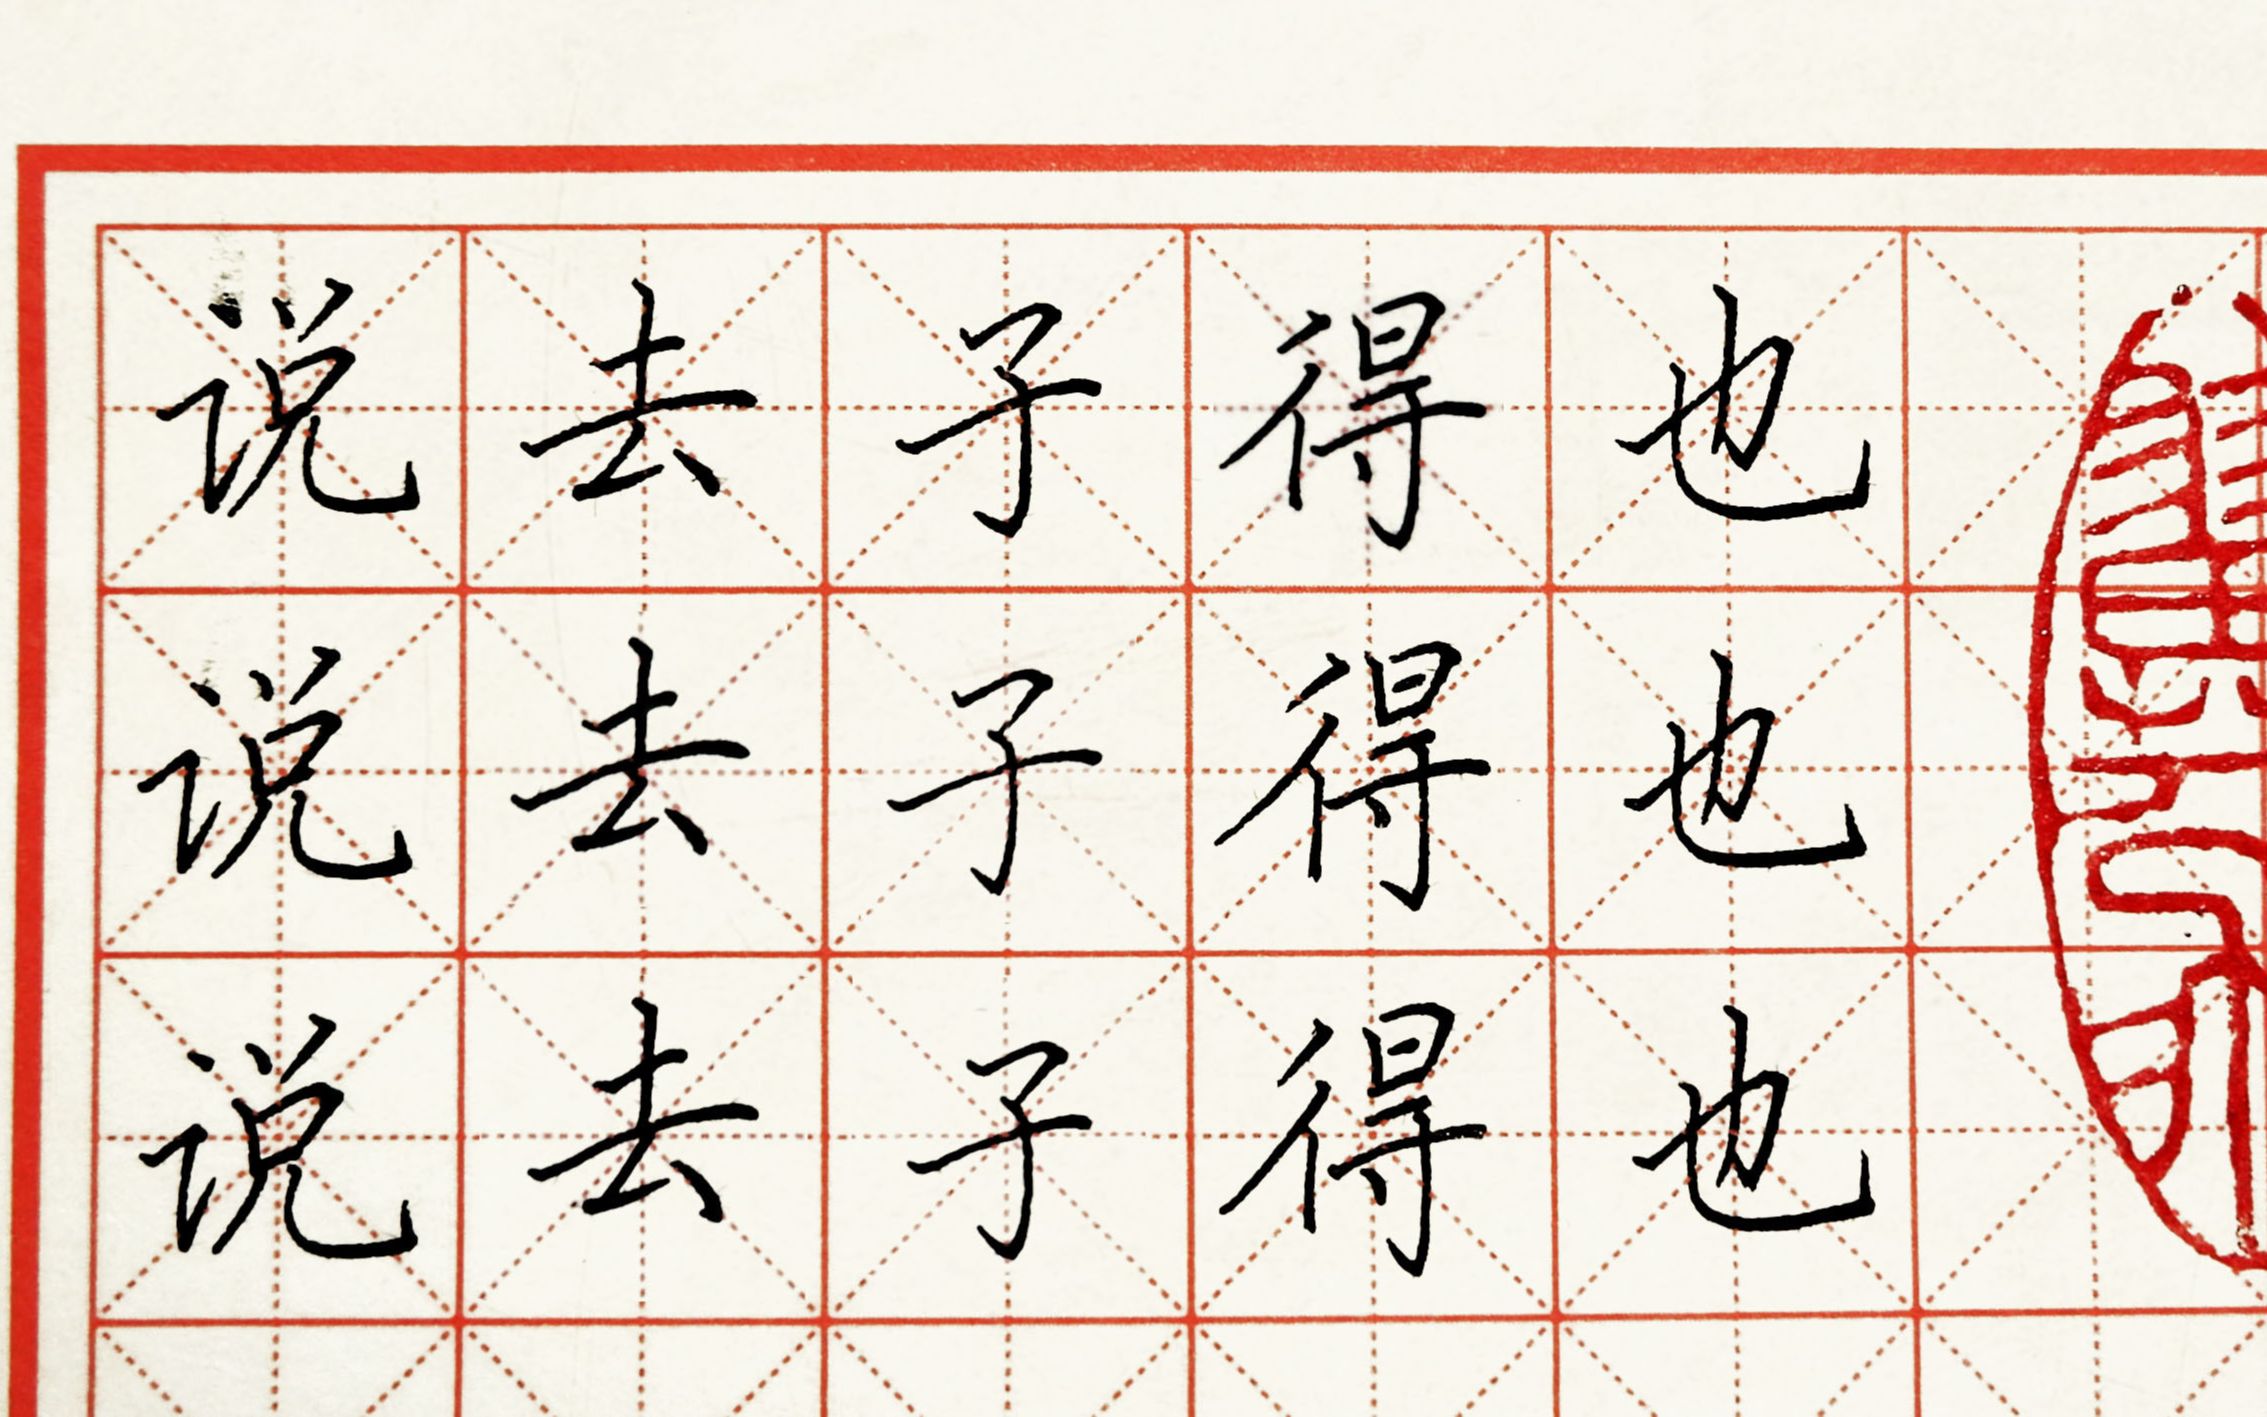 说去子得也
说去子得也
说去子得也